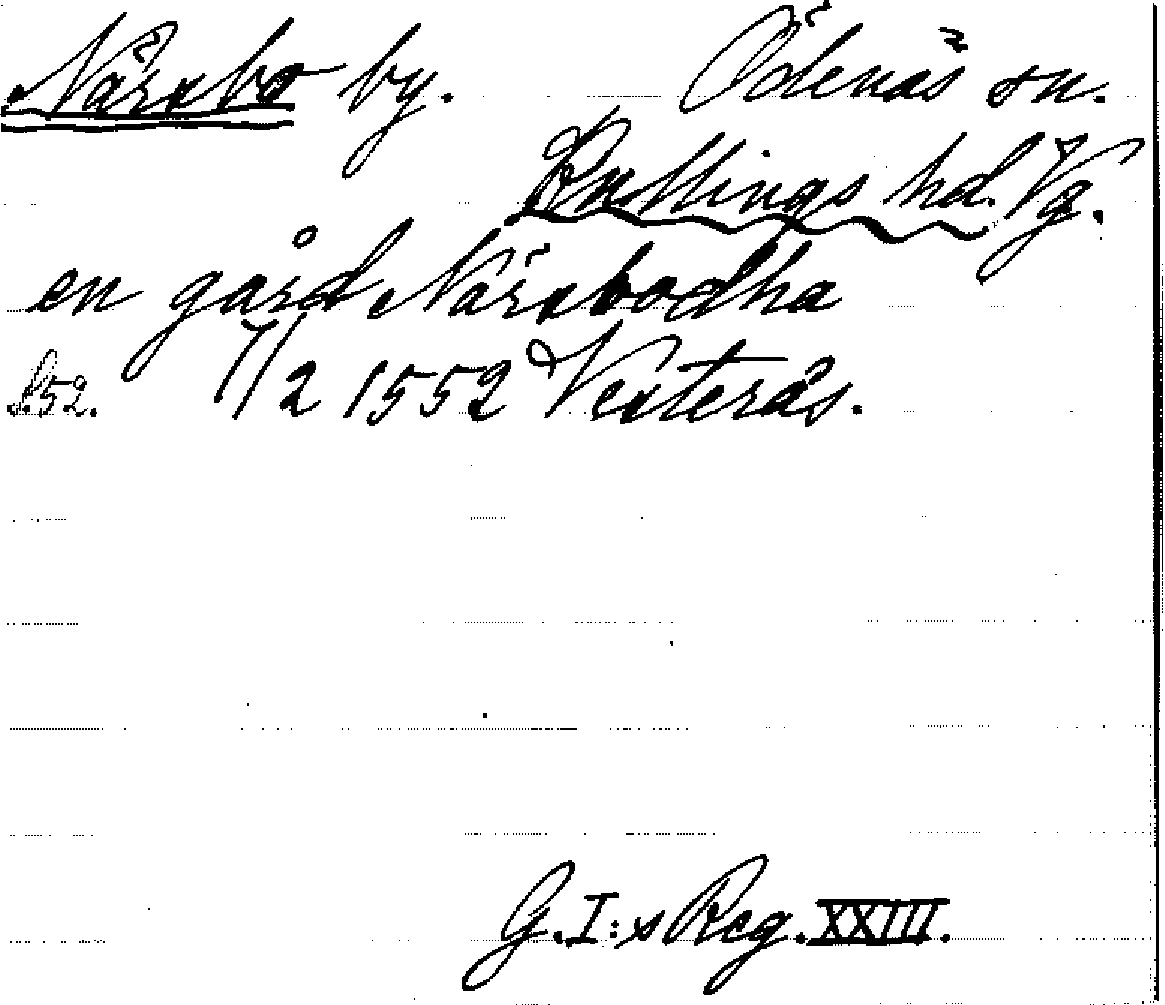 Närsbo by. Ödenäs sn.
Kullings hd. Vg.
en gård Närsbodha
S. 52. 7/2 1552 Vesterås.
G. I:s Reg. XXIII.